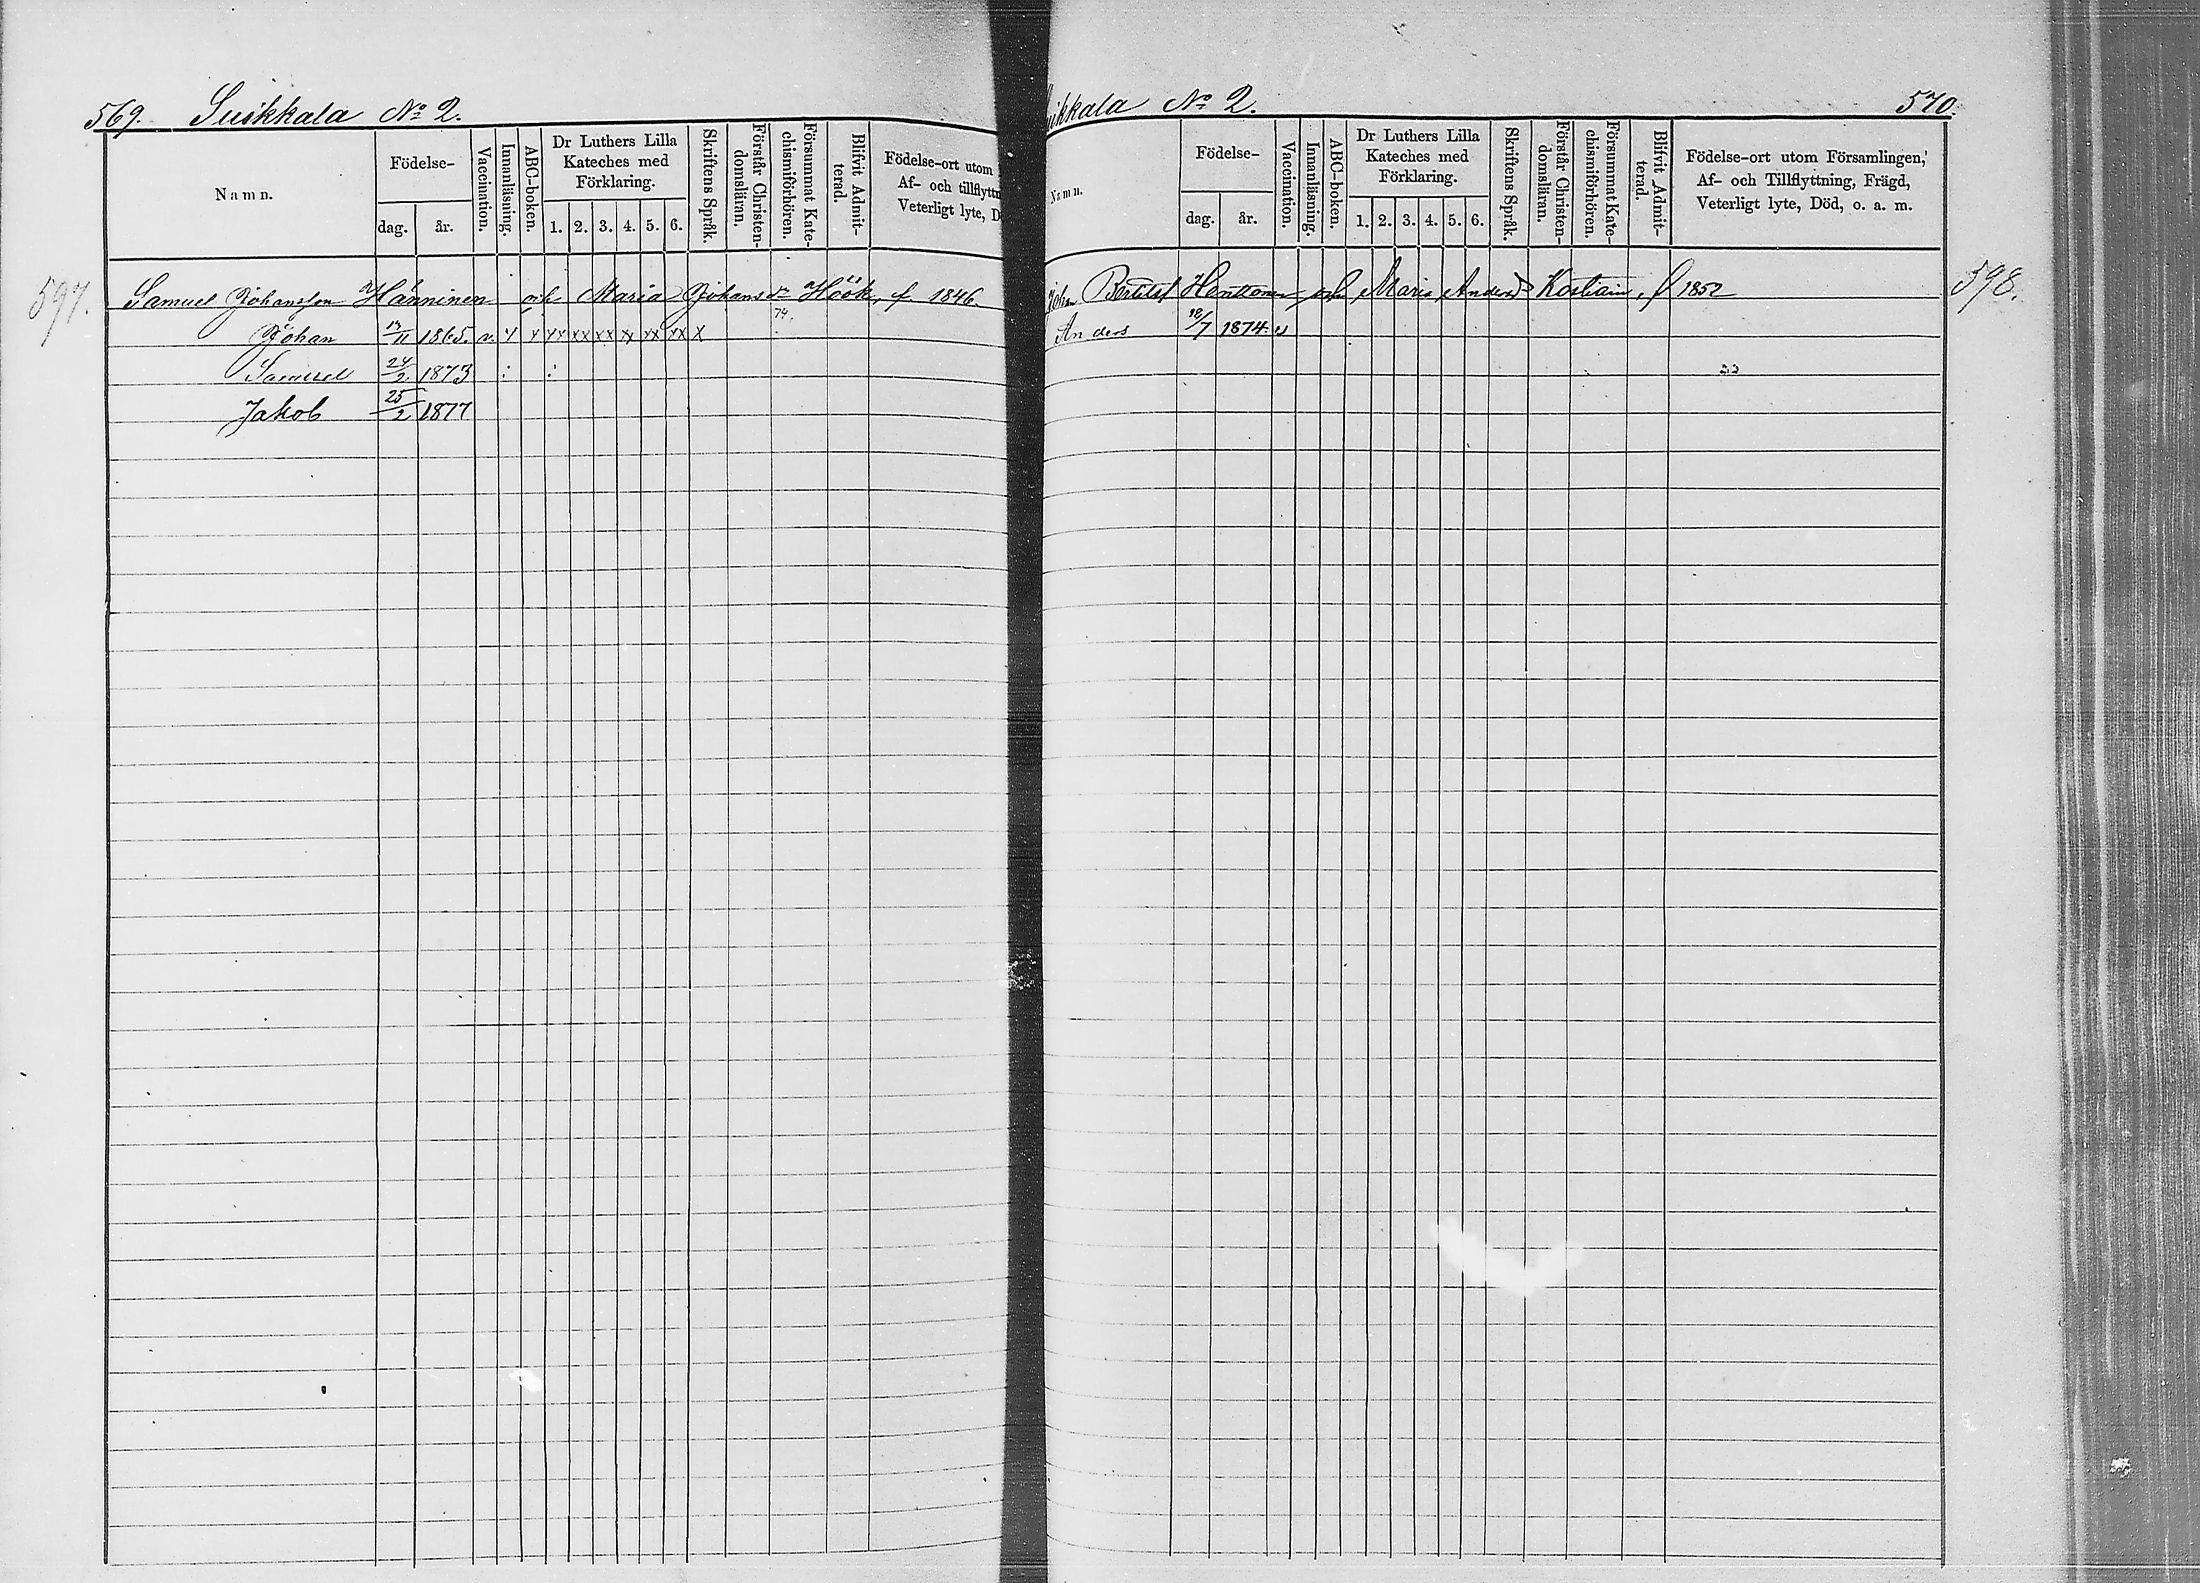 569. Suikkala No 2.
Namn.
Födelse-
dag. år.
Vaccination.
Innanläsning.
ABC-boken.
Dr Luthers Lilla
Kateches med
Förklaring.
1. 2. 3. 4. 5. 6.
Skriftens Språk.
Förstår Christen-
domsläran.
Försummat Kate-
chismiförhören.
Blifvit Admit-
terad.
Födelse-ort utom
Af- och tillflyttn
Veterligt lyte, D
597. Samuel Johansson Hänninen och Maria Johansdr Höök, f. 1846.
Johan 13/11 1865. v. x x xx xx xx xx xx xx x 74.
Samuel 24/2 1873 : :
Jakob 25/2 1877
uikkala No 2. 570.
Namn.
Födelse-
dag. år.
Vaccination.
Innanläsning.
ABC-boken.
Dr Luthers Lilla
Kateches med
Förklaring.
1. 2. 3. 4. 5. 6.
Skriftens Språk.
Förstår Christen-
domsläran.
Försummat Kate-
chismiförhören.
Blifvit Admit-
terad.
Födelse-ort utom Församlingen,
Af- och Tillflyttning, Frägd,
Veterligt lyte, Död, o. a. m.
Johan Bertilsf Henttonen och Maria Andersd Kostiain, f 1852 598.
Anders 18/7 1874. v